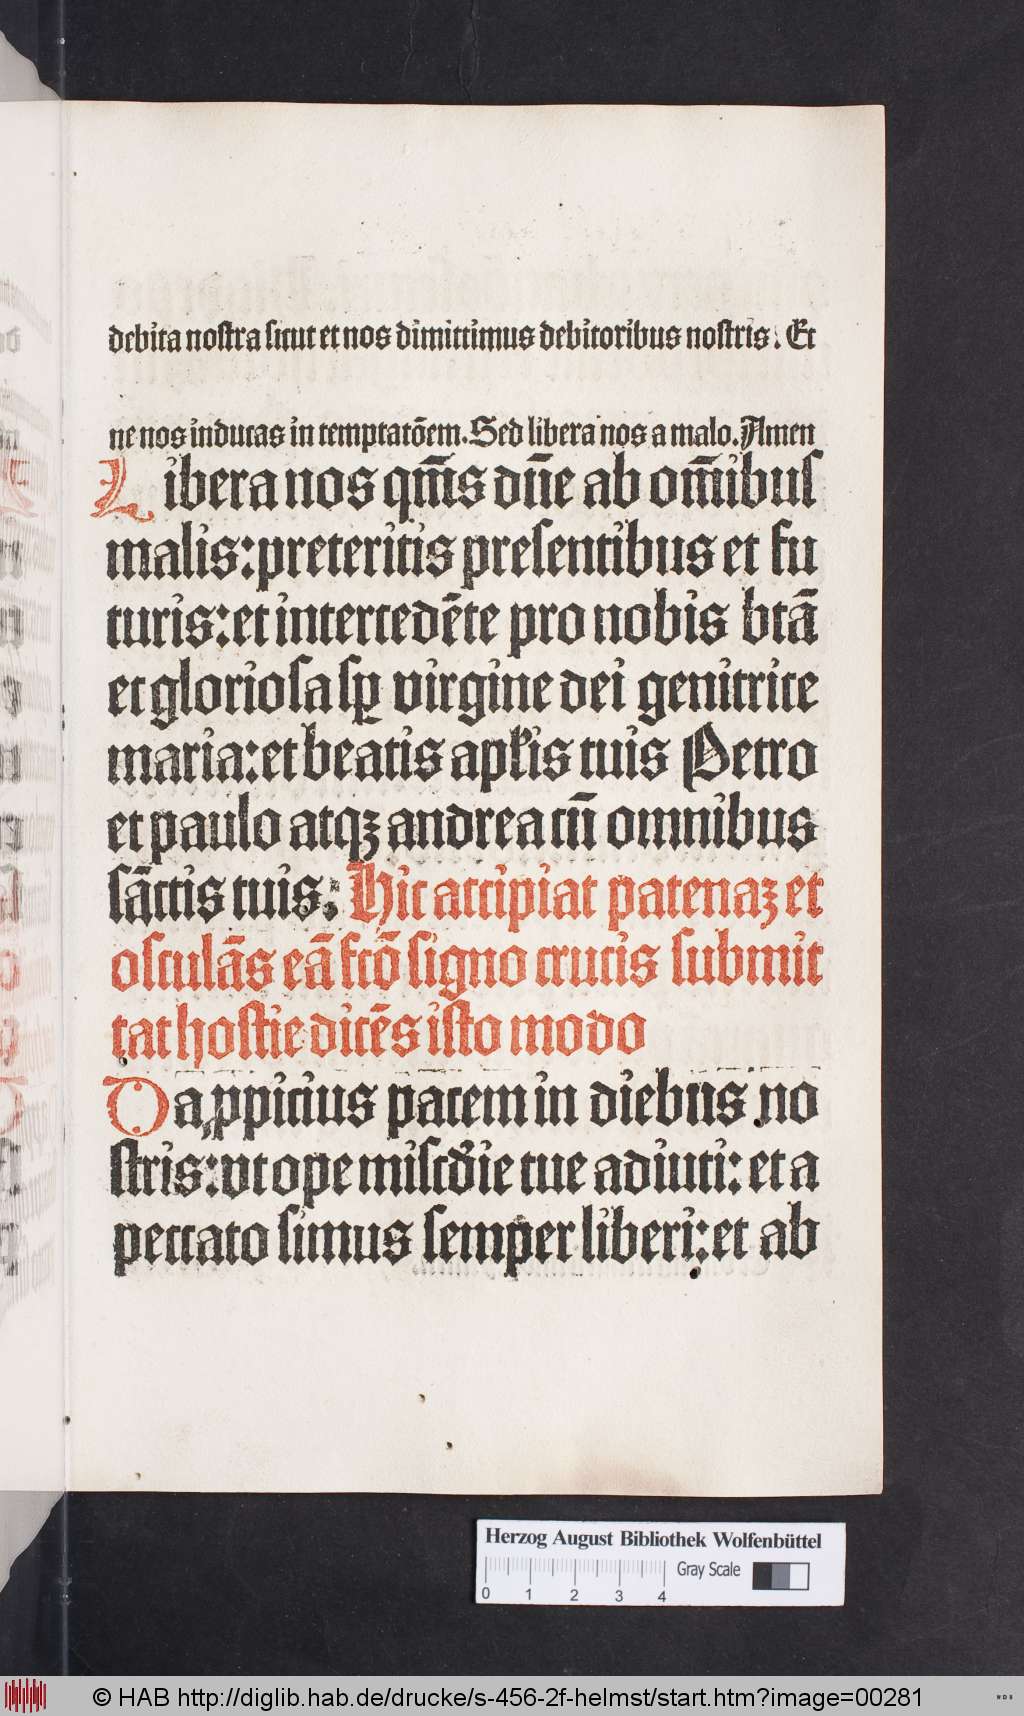 debita nostra sicut et nos dimittimus debitoribus nostris. Et
ne nos inducas in temptatōem. Sed libera nos a malo. Amen
Libera nos qm̄s dn̄e ab om̄ibus
malis: preteritis presentibus et fu
turis: et intercedēte pro nobis btā
et gloriosa sp virgine dei genitrice
maria: et beatis aplis tuis Petro
et paulo atqꝫ andrea cū omnibus
sāctis tuis. Hic accipiat patenaꝫ et
osculās eā fctō signo crucis submit
tat hostie dicēs isto modo
Da ꝓpicius pacem in diebus no
stris: vt ope miscd̄ie tue adiuti: et a
peccato simus semper liberi: et ab
Herzog August Bibliothek Wolfenbüttel
Gray Scale
0 1 2 3 4
© HAB http://diglib.hab.de/drucke/s-456-2f-helmst/start.htm?image=00281